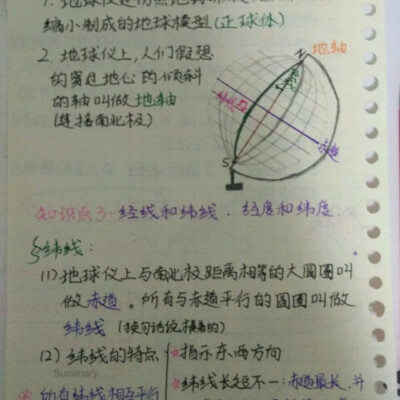 缩小制成的地球模型(正球体)
2. 地球仪上,人们假想
的穿过地心的倾斜
的轴叫做地轴
(连接南北极)
N
地轴
赤道
S
知识点3 经线和纬线、经度和纬度
纬线:
(1)地球仪上与南北极距离相等的大圆圈叫
做赤道。所有与赤道平行的圆圈叫做
纬线(换句话说横着的)
(2) 纬线的特点:☆指示东西方向
Summary
所有纬线相互平行
☆纬线长短不一:赤道最长,并